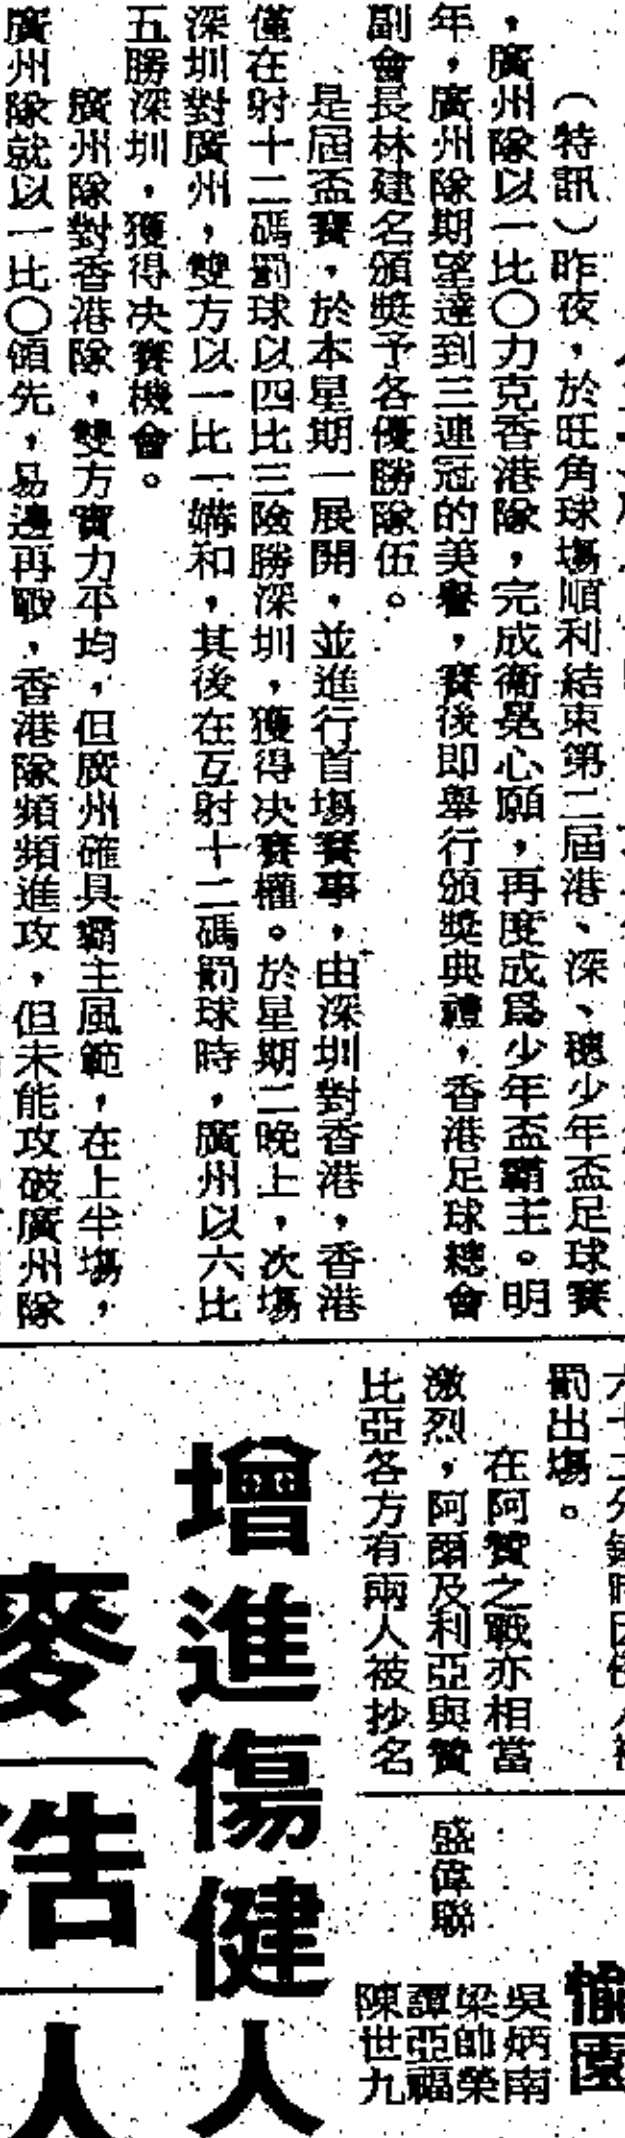 （特訊）昨夜，於旺角球塲順利結束第二屆港、深、穗少年盃足球賽
，廣州隊以一比〇力克香港隊，完成衞冕心願，再度成爲少年盃霸主。明
年，廣州隊期望達到三連冠的美譽，賽後即舉行頒獎典禮，香港足球總會
副會長林建名頒獎予各優勝隊伍。
是屆盃賽，於本星期一展開，並進行首場賽事，由深圳對香港，香港
僅在射十二碼罰球以四比三險勝深圳，獲得决賽權。於星期二晚上，次塲
深圳對廣州，雙方以一比一媾和，其後在互射十二碼罰球時，廣州以六比
五勝深圳，獲得决賽機會。
廣州隊對香港隊，雙方實力平均，但廣州確具霸主風範，在上半塲，
廣州隊就以一比〇領先，易邊再戰，香港隊頻頻進攻，但未能攻破廣州隊
罰出塲。
在阿贊之戰亦相當
激烈，阿爾及利亞與贊
比亞各方有兩人被抄名
愉園
吳炳南
梁帥榮
譚亞福
陳世九
盛偉聯
增進傷健人
麥
浩
人